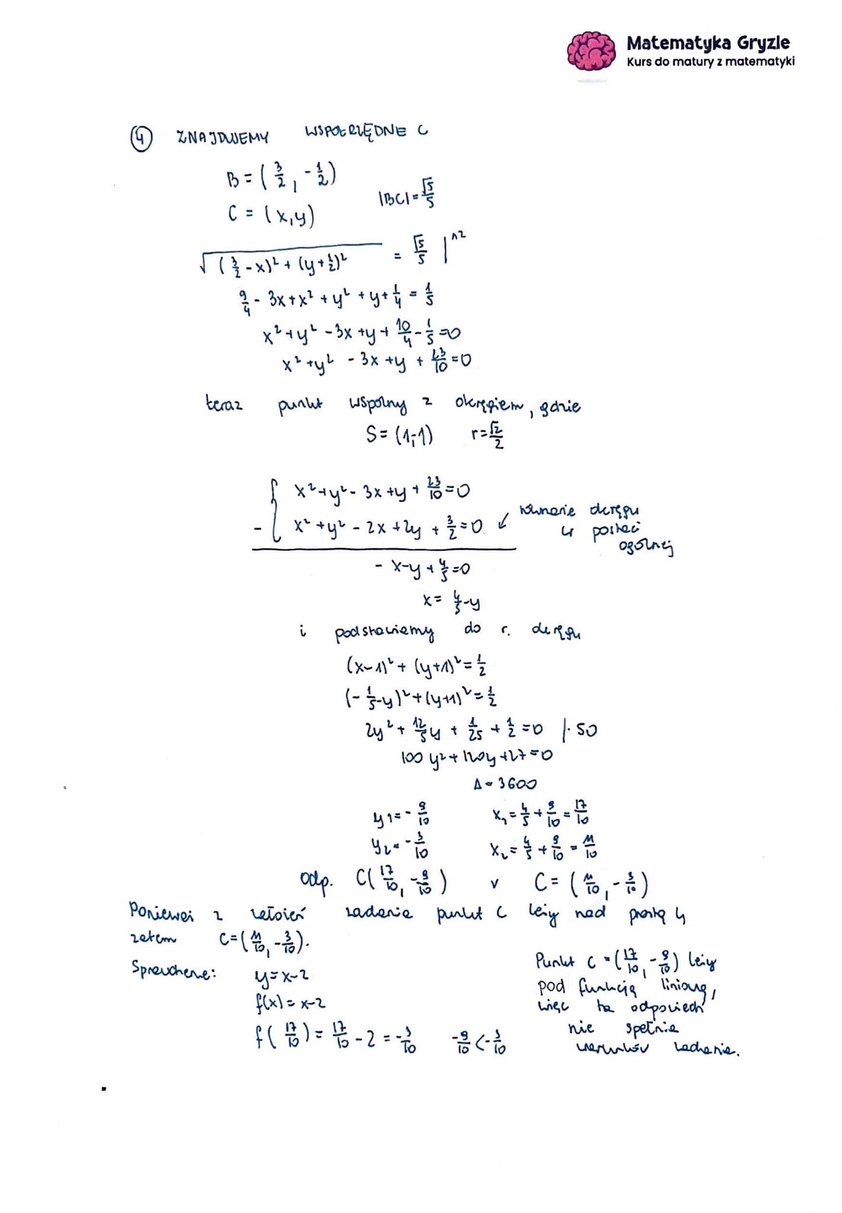 Matematyka Gryzie
Kurs do matury z matematyki
④ ZNAJDUJEMY WSPÓŁRZĘDNE C
B = (3/2, -1/2)
C = (x,y)
|BC| = √5/5
√((3/2 - x)² + (y+1/2)²) = √5/5 |^2
9/4 - 3x + x² + y² + y + 1/4 = 1/5
x² + y² - 3x + y + 10/4 - 1/5 = 0
x² + y² - 3x + y + 23/10 = 0
teraz punkt wspólny z okręgiem, gdzie
S = (1,-1) r = √2/2
x² + y² - 3x + y + 23/10 = 0
- { x² + y² - 2x + 2y + 3/2 = 0 ↙ równanie okręgu
w postaci
ogólnej
- x - y + 4/5 = 0
x = 4/5 - y
i podstawiamy do r. okręgu
(x-1)² + (y+1)² = 1/2
(-1/5 - y)² + (y+1)² = 1/2
2y² + 12/5 y + 1/25 + 1/2 = 0 |· 50
100y² + 120y + 27 = 0
Δ = 3600
y₁ = -9/10 x₁ = 4/5 + 9/10 = 17/10
y₂ = -3/10 x₂ = 4/5 + 9/10 = 11/10
odp. C(17/10, -9/10) v C = (11/10, -3/10)
Ponieważ z założeń zadania punkt C leży nad prostą
zatem C = (11/10, -3/10).
Sprawdzenie: y = x-2
f(x) = x-2
f(17/10) = 17/10 - 2 = -3/10 -9/10 < -3/10
Punkt C = (17/10, -9/10) leży
pod funkcją liniową,
więc ta odpowiedź
nie spełnia
warunków zadania.